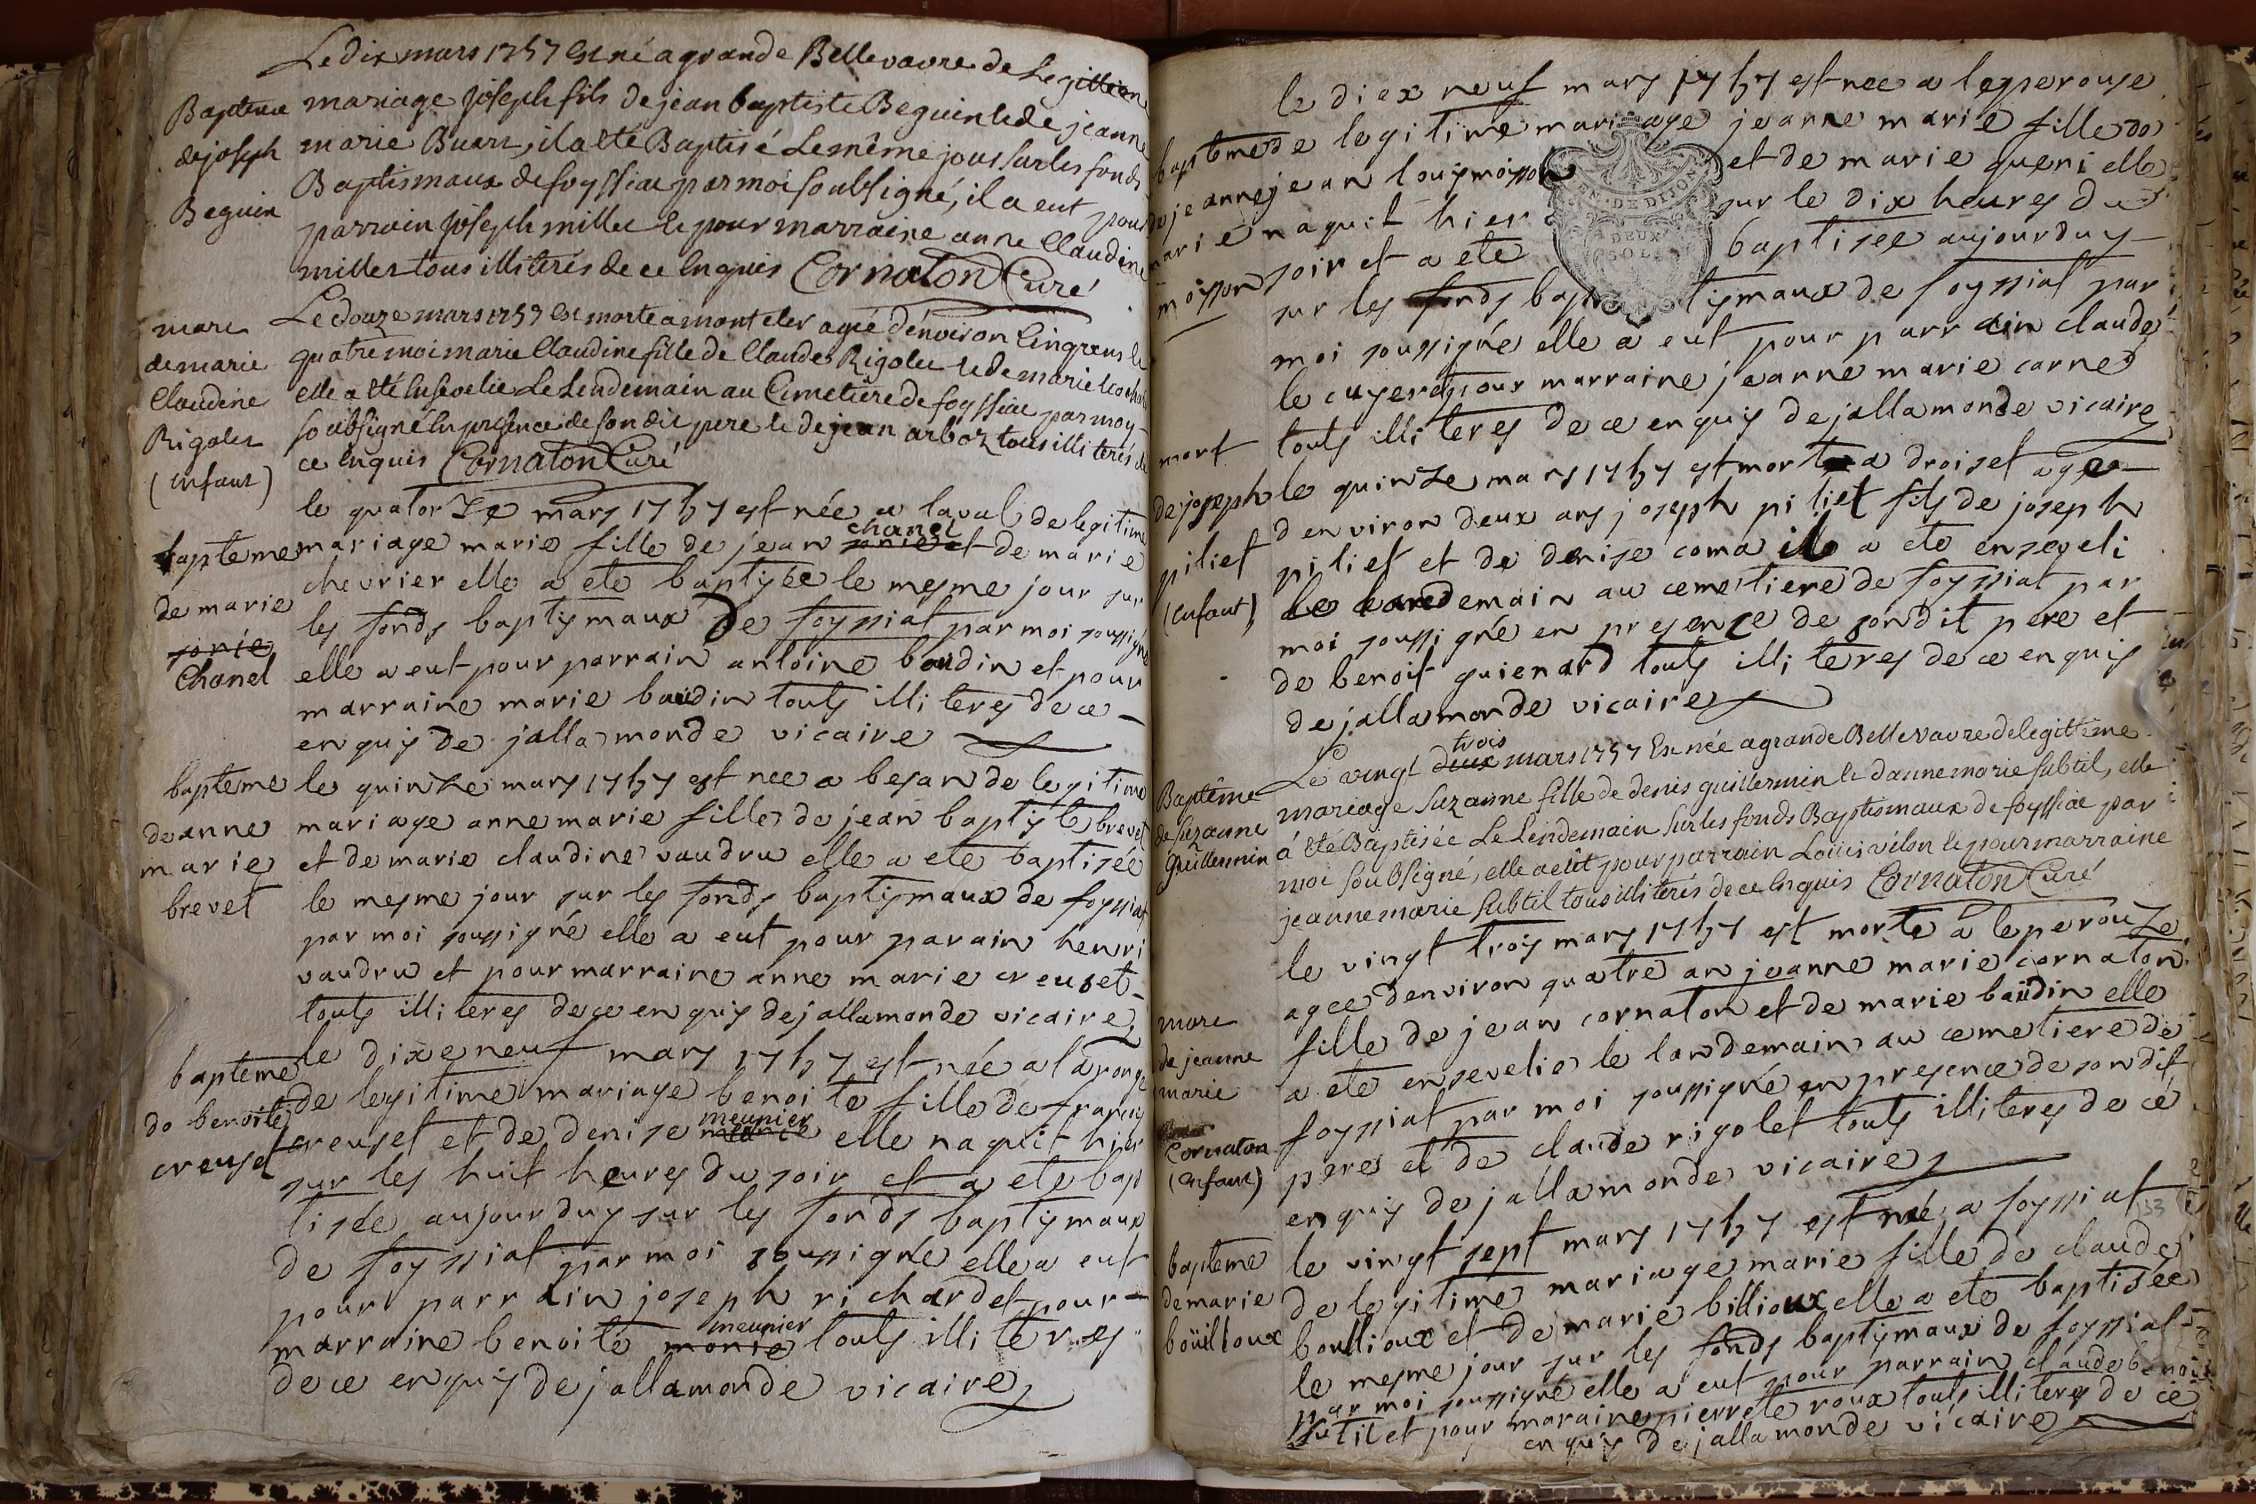 Le dix mars 1757 Est né a grande Bellevavre de Legittime
Baptême
de joseph
Beguin
mariage joseph fils de jean baptiste Beguin et de jeanne
marie Buart, il a été Baptisé Le même jour sur les fonds
Baptismaux de foyssiat par moi soubsigné, il a eut pour
parrain joseph millet et pour marraine anne Claudine
millet tous illiterés de ce Enquis Cornaton Curé
mort
de marie
Claudine
Rigolet
(enfant)
Le douze mars 1757 Est morte a
agée d'environ Cinq ans et
quatre moi marie Claudine fille de Claude Rigolet et de marie
elle a été Ensevelie Le Lendemain au Cimetière de foyssiat par moy
soubsigné En présence de son dit pere et de jean arboz tous illiterés de
ce Enquis Cornaton Curé
bapteme
de marie
jorie
Chanel
le quatorze mars 1757 est née a laval de legitime
chanel
mariage marie fille de jean jorie et de marie
chevrier elle a eté baptisée le mesme jour sur
les fonds baptismaux De foyssiat par moi soussigné
elle a eut pour parrain antoine baudin et pour
marraine marie baudin touts illiteres de ce
enquis de jallamonde vicaire
bapteme
de anne
marie
brevet
le quinze mars 1757 est nee a besan de legitime
mariage anne marie fille de jean baptiste brevet
et de marie claudine vaudru elle a eté baptisée
le mesme jour sur les fonds baptismaux de foyssiat
par moi soussigné elle a eut pour parain henri
vaudru et pour marraine anne marie creuset
touts illiteres de ce enquis de jallamonde vicaire
bapteme
de benoite
creuset
le dixe neuf mars 1757 est née a laronge
de legitime mariage benoite fille de françois
meunier
creuset et de denise elle naquit hier
sur les huit heures du soir et a eté bap
tisée aujourduy sur les fonds baptismaux
de foyssiat par moi soussigné elle a eut
pour parrain joseph richardet pour
meunier
marraine benoite monie touts illiteres
de ce enquis de jallamonde vicaire
le diex neuf mars 1757 est nee a lesperouse
bapteme
de jeanne
marie
moisson
de legitime mariage jeanne marie fille de
jean louis moisson et de marie queni elle
naquit hier sur le dix heures du
soir et a eté baptisee aujourduy
sur les fonds baptismaux de foyssiat par
EN. DE DIJON
DEUX
SOLS
moi soussigné elle a eut pour parrain claude
le cuyer et pour marraine jeanne marie carne
touts illiteres de ce enquis de jallamonde vicaire
mort
de joseph
piliet
(enfant)
le quinze mars 1757 est morte a droiset agee
d environ deux ans joseph piliet fils de joseph
piliet et de denise coma il a eté enseveli
le landemain au cemetiere de foyssiat par
moi soussigné en presence de sondit pere et
de benoit guienard touts illiteres de ce enquis
de jallamonde vicaire
trois
Le vingt deux mars 1757 Est née a grande Bellevavre de legittime
Baptême
de suzanne
Guillermin
mariage suzanne fille de denis guillermin et d'anne marie subtil, elle
à été Baptisée Le Lendemain sur les fonds Baptismaux de foyssiat par
moi soubsigné, elle a eût pour parrain Louis vélon et pour marraine
jeanne marie subtil tous illiterés de ce Enquis Cornaton Curé
mort
de jeanne
marie
Cornaton
(enfant)
le vingt trois mars 1757 est morte a leperouze
agee denviron quatre an jeanne marie cornaton
fille de jean cornaton et de marie baudin elle
a eté ensevelie le landemain au cemetiere de
foyssiat par moi soussigné en presence de sondit
pere et de claude rigolet touts illiteres de ce
enquis de jallamonde vicaire
bapteme
de marie
boüilloux
le vingt sept mars 1757 est né a foyssiat
53
de legitime mariage marie fille de claude
boullioux et de marie billioux elle a eté baptisée
le mesme jour sur les fonds baptismaux de foyssiat
par moi soussigné elle a eut pour parrain claude benoit
sutil et pour maraine pierrete roux touts illiteres de ce
enquis de jallamonde vicaire